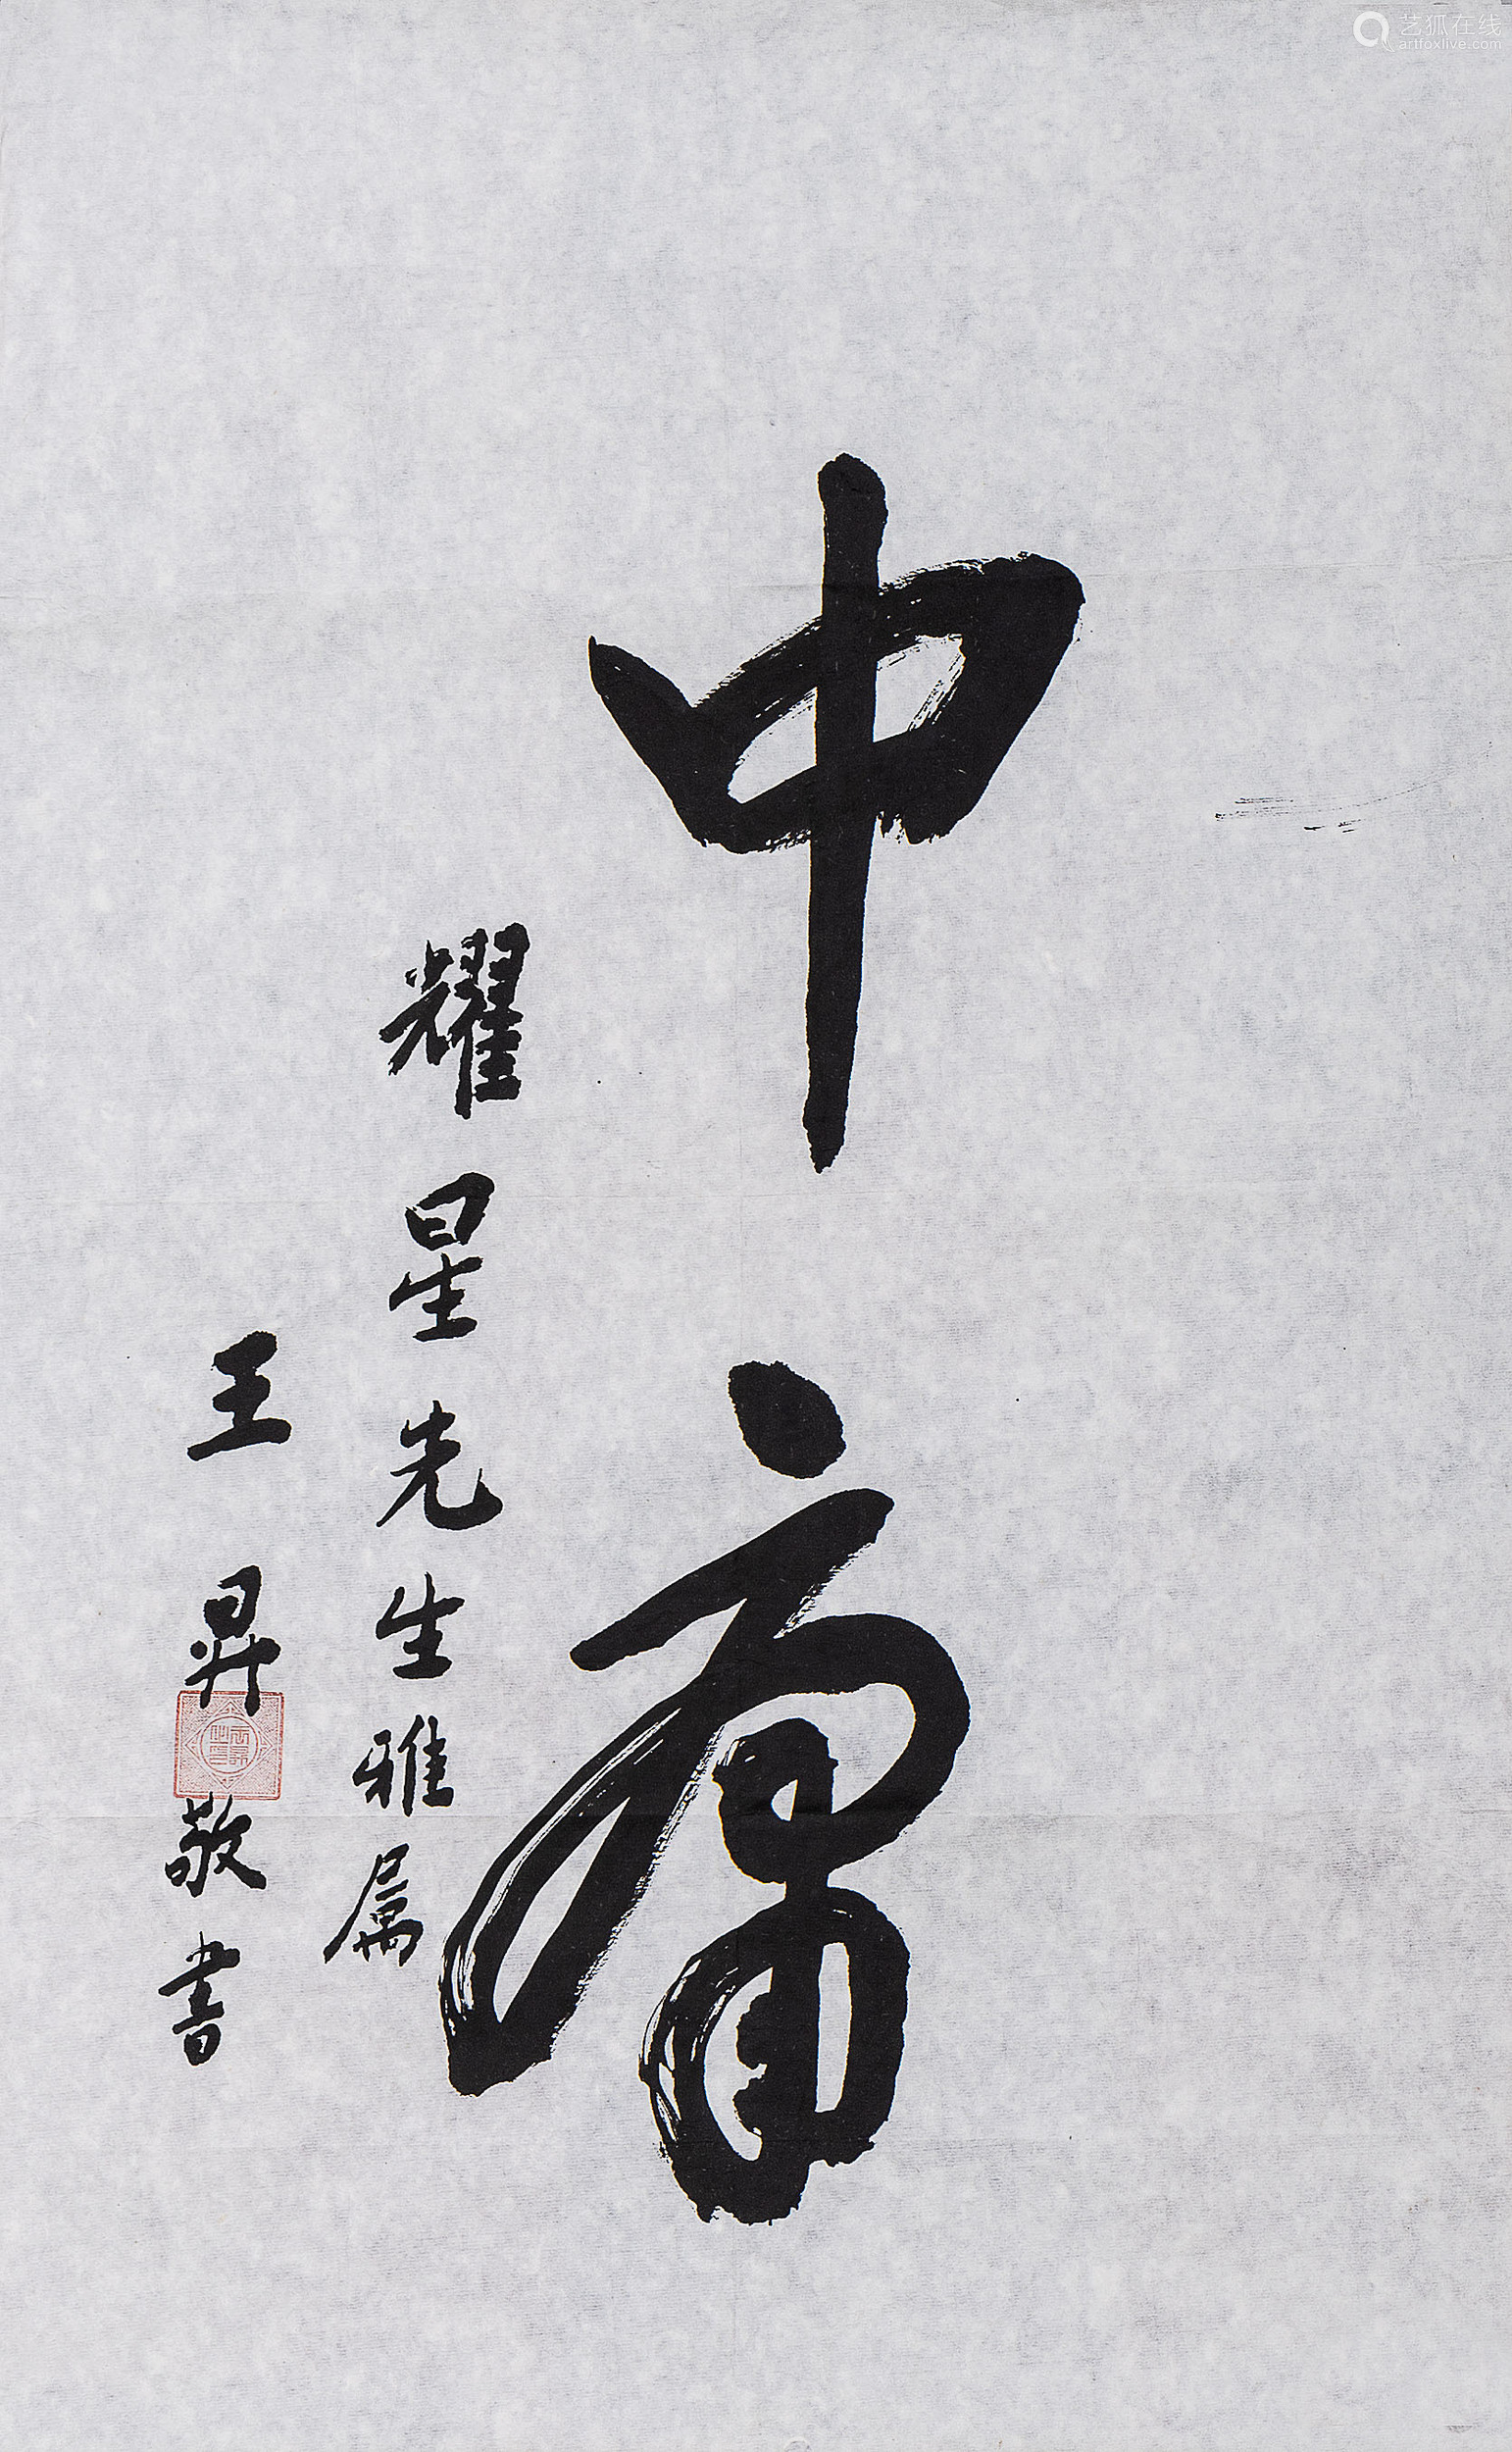 中庸
耀星先生雅屬
王昇敬書
艺狐在线
artfoxlive.com